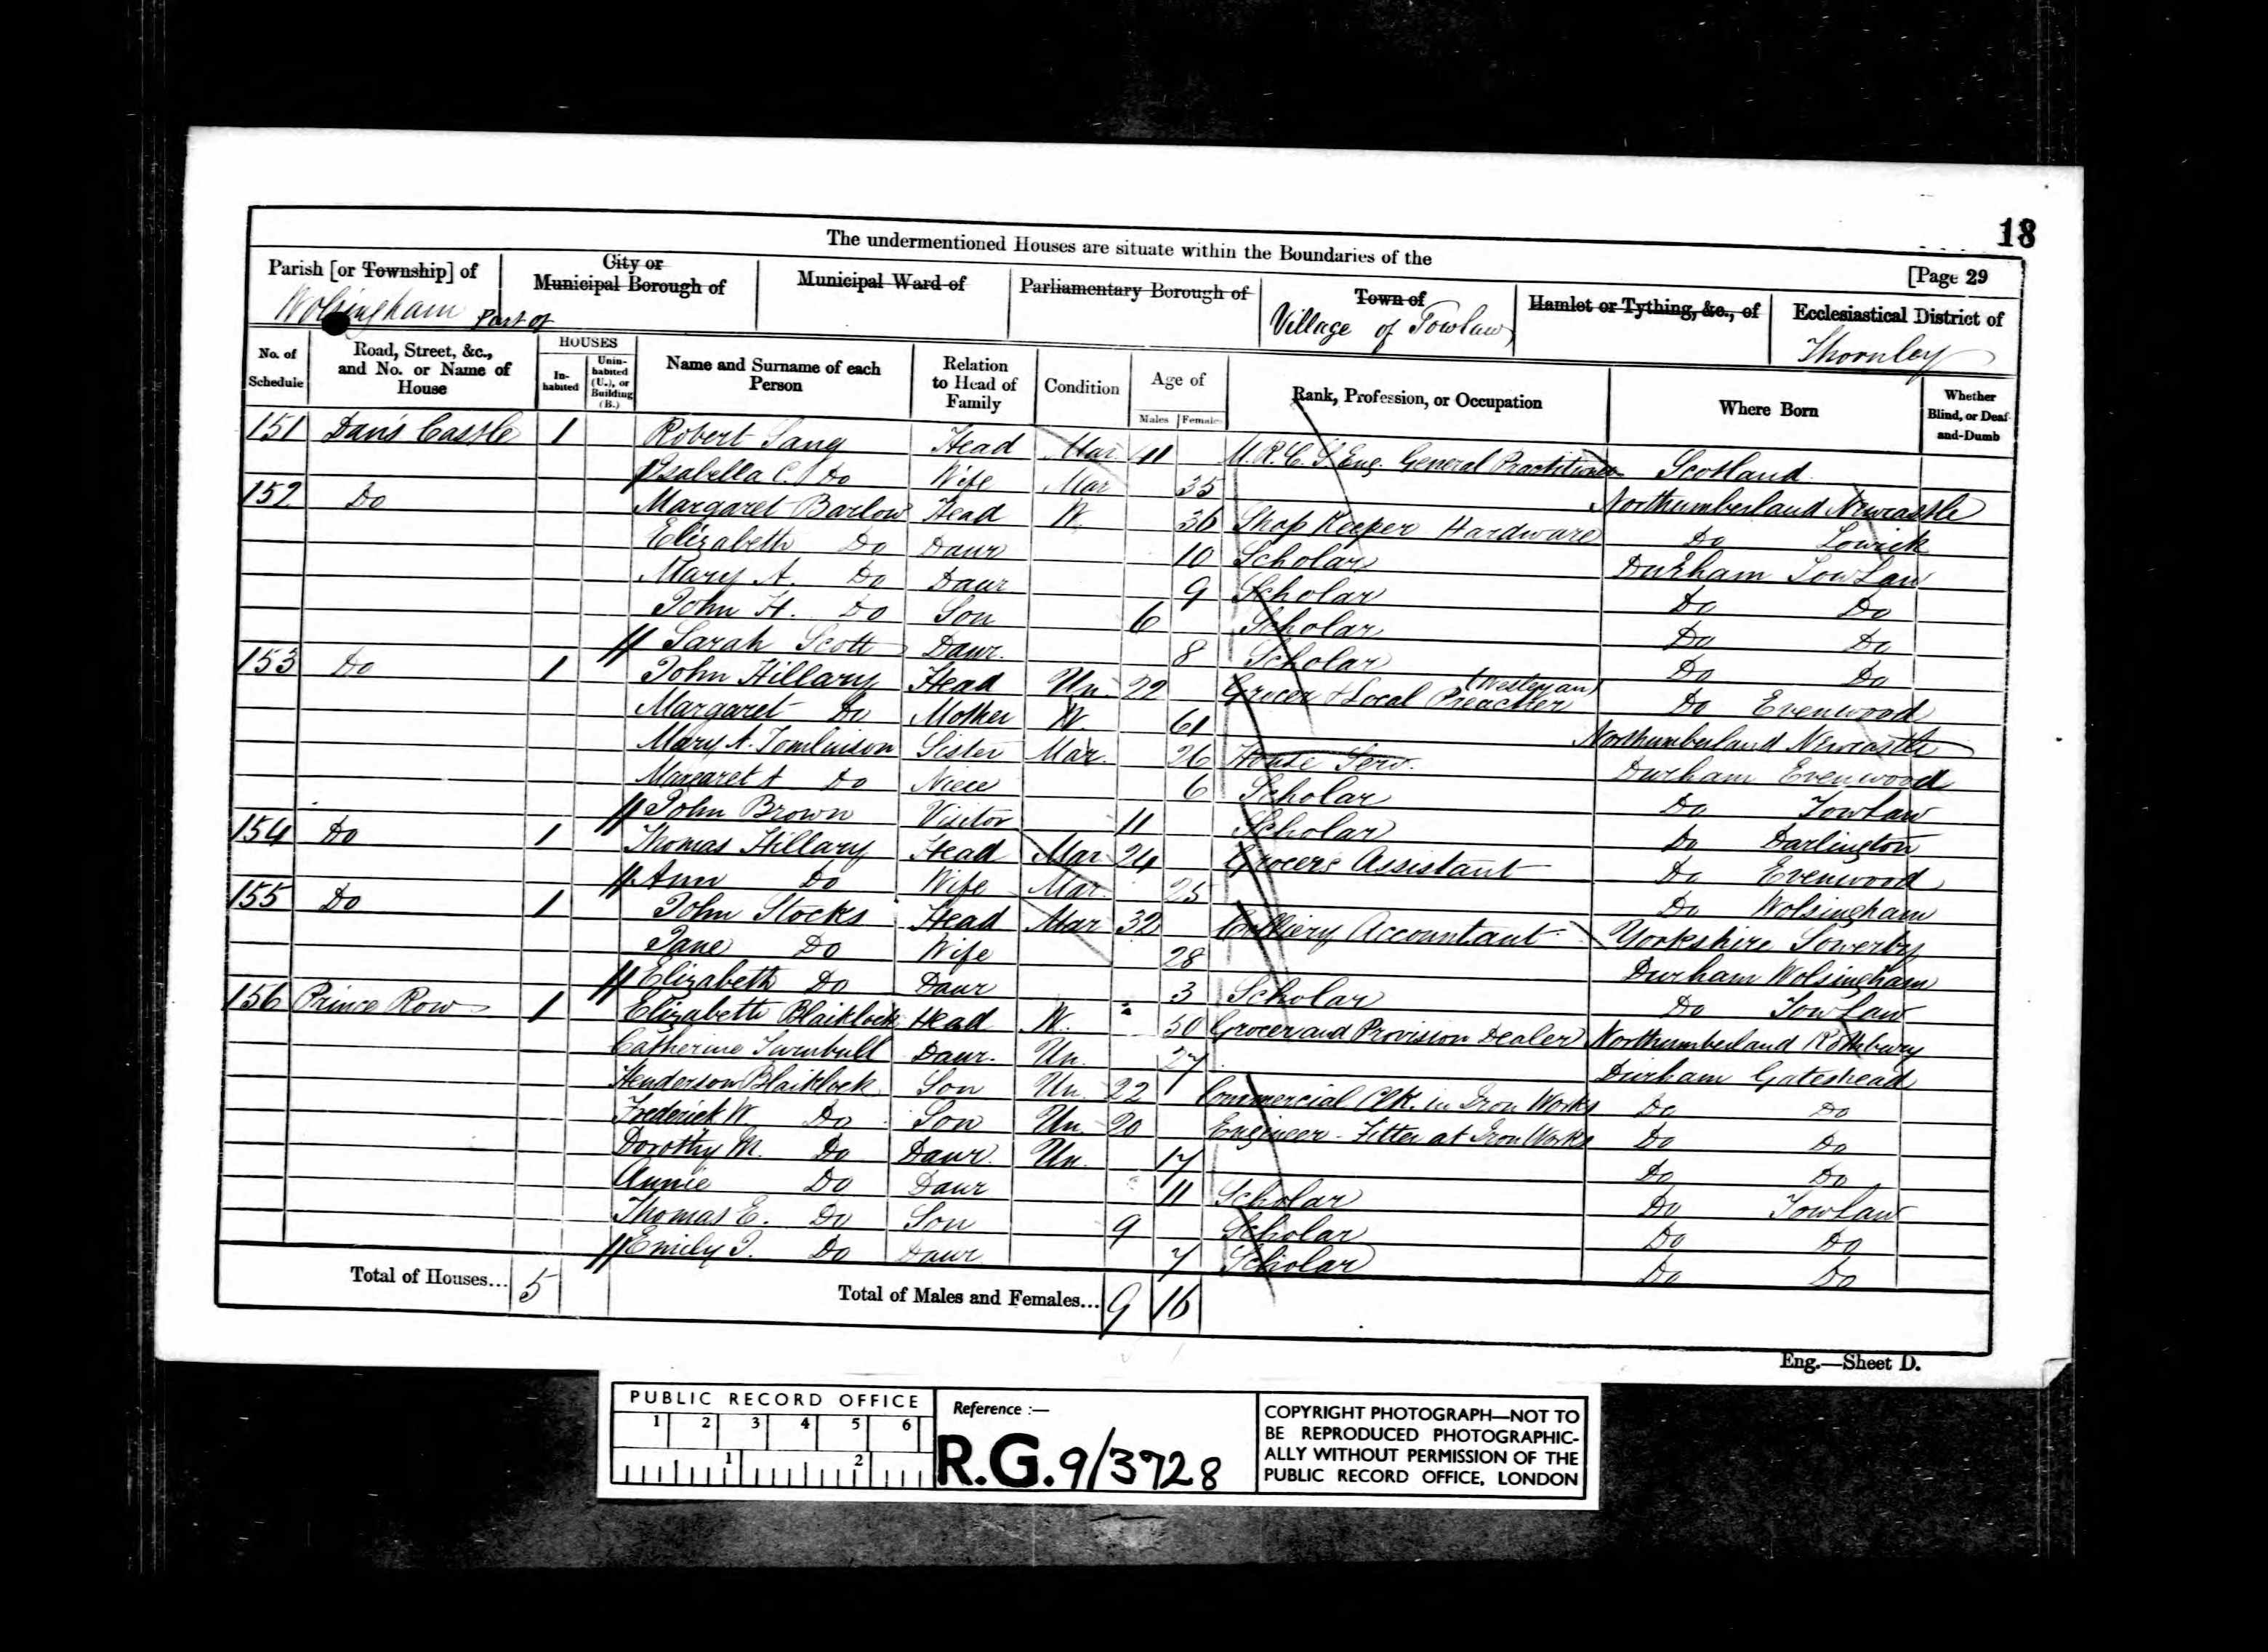 18
The undermentioned Houses are situate within the Boundaries of the
[Page 29
Parish [or Township] of
Wolsingham Part of
City or Municipal Borough of
Municipal Ward of
Parliamentary Borough of
Town of
Village of Towlaw
Hamlet or Tything, &c., of
Ecclesiastical District of
Thornley
No. of Schedule
Road, Street, &c., and No. or Name of House
HOUSES
In-habited
Unin-habited (U.), or Building (B.)
Name and Surname of each Person
Relation to Head of Family
Condition
Age of
Males Females
Rank, Profession, or Occupation
Where Born
Whether Blind, or Deaf-and-Dumb
151 Dan's Castle 1 Robert Head Mar 41 M.R.C.S. Eng. General Practitioner Scotland
Isabella C. Do Wife Mar 35 Northumberland Newcastle
152 Do Margaret Barlow Head W. 36 Shop Keeper Hardware Do Lowick
Elizabeth Do Daur 10 Scholar Durham Tow Law
Mary A. Do Daur 9 Scholar Do Do
John H. Do Son 6 Scholar Do Do
Sarah Scott Daur. 8 Scholar Do Do
153 Do 1 John Hillary Head Un. 22 Grocer & Local Preacher (Wesleyan) Do Evenwood
Margaret Do Mother W. 61 Northumberland Newcastle
Mary A. Tomlinson Sister Mar. 26 House Serv. Durham Evenwood
Margaret A Do Niece 6 Scholar Do Tow Law
John Brown Visitor 11 Scholar Do Darlington
154 Do 1 Thomas Hillary Head Mar 24 Grocers Assistant Do Evenwood
Ann Do Wife Mar. 25 Do Wolsingham
155 Do 1 John Stocks Head Mar 32 Colliery Accountant Yorkshire Sowerby
Jane Do Wife 28 Durham Wolsingham
Elizabeth Do Daur 3 Scholar Do Tow Law
156 Prince Row 1 Elizabeth Blaiklock Head W. 50 Grocer and Provision Dealer Northumberland Rothbury
Catherine Turnbull Daur. Un. 27 Durham Gateshead
Henderson Blaiklock Son Un. 22 Commercial Clk. in Iron Works Do Do
Frederick W. Do Son Un. 20 Engineer - Fitter at Iron Works Do Do
Dorothy M. Do Daur. Un. 17 Do Do
Annie Do Daur 11 Scholar Do Tow Law
Thomas E. Do Son 9 Scholar Do Do
Emily J. Do Daur 7 Scholar Do Do
Total of Houses... 5 Total of Males and Females... 9 16
Eng.—Sheet D.
PUBLIC RECORD OFFICE
1 2 3 4 5 6
1 2
Reference :—
R.G. 9/3728
COPYRIGHT PHOTOGRAPH—NOT TO
BE REPRODUCED PHOTOGRAPHIC-
ALLY WITHOUT PERMISSION OF THE
PUBLIC RECORD OFFICE, LONDON